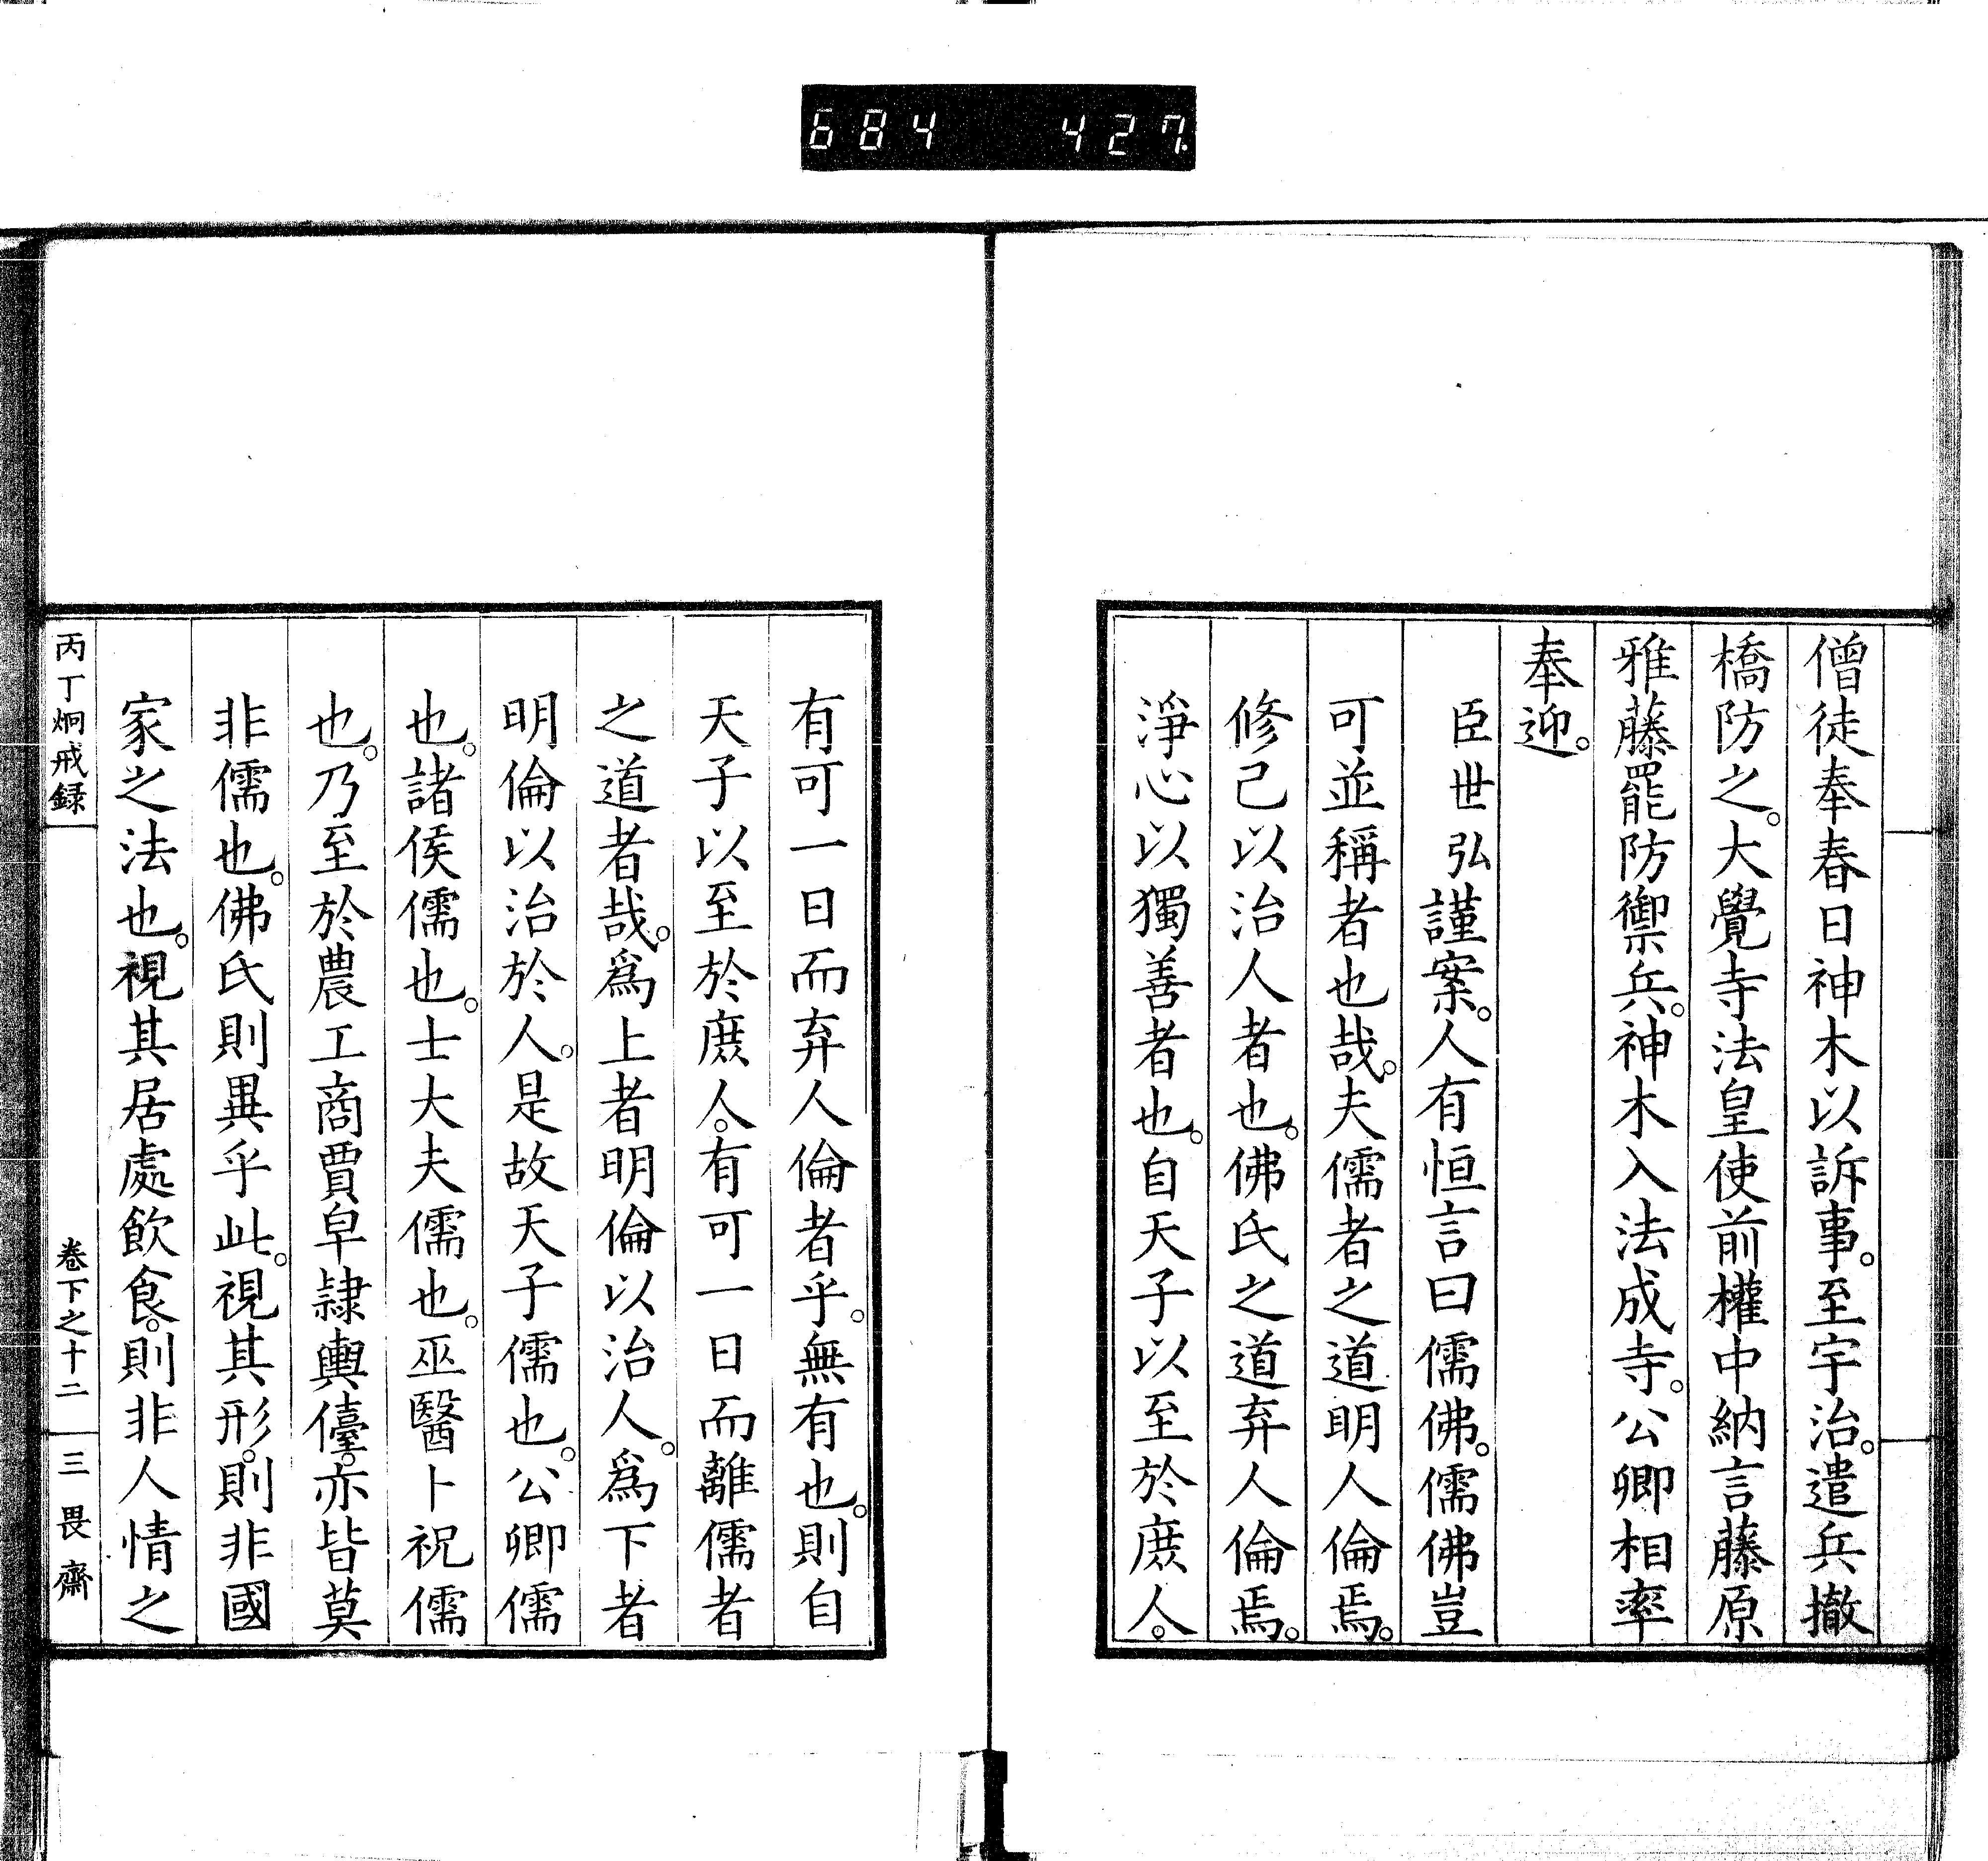 684 427
僧徒奉春日神木以訴事。至宇治。遣兵撤
橋防之。大覺寺法皇使前權中納言藤原
雅藤罷防禦兵。神木入法成寺。公卿相率
奉迎。
臣世弘謹案。人有恒言曰儒佛。儒佛豈
可並稱者也哉。夫儒者之道明人倫焉。
修己以治人者也。佛氏之道弃人倫焉。
淨心以獨善者也。自天子以至於庶人。
有可一日而弃人倫者乎。無有也。則自
天子以至於庶人。有可一日而離儒者
之道者哉。爲上者明倫以治人。爲下者
明倫以治於人。是故天子儒也。公卿儒
也。諸侯儒也。士大夫儒也。巫醫卜祝儒
也。乃至於農工商賈皁隷輿儓。亦皆莫
非儒也。佛氏則異乎此。視其形。則非國
家之法也。視其居處飲食。則非人情之
丙丁烱戒録
卷下之十二
三畏齋